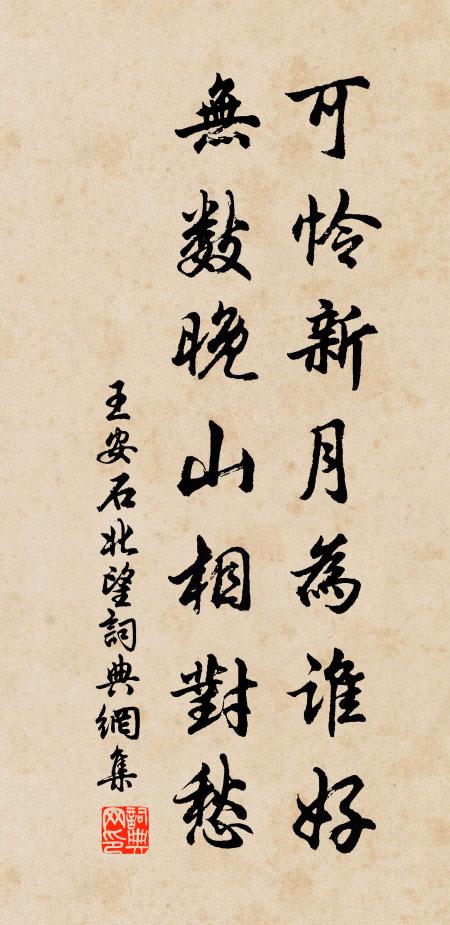 可怜新月為谁好
無数晚山相對愁
王安石北望詞典網集
詞典
网印